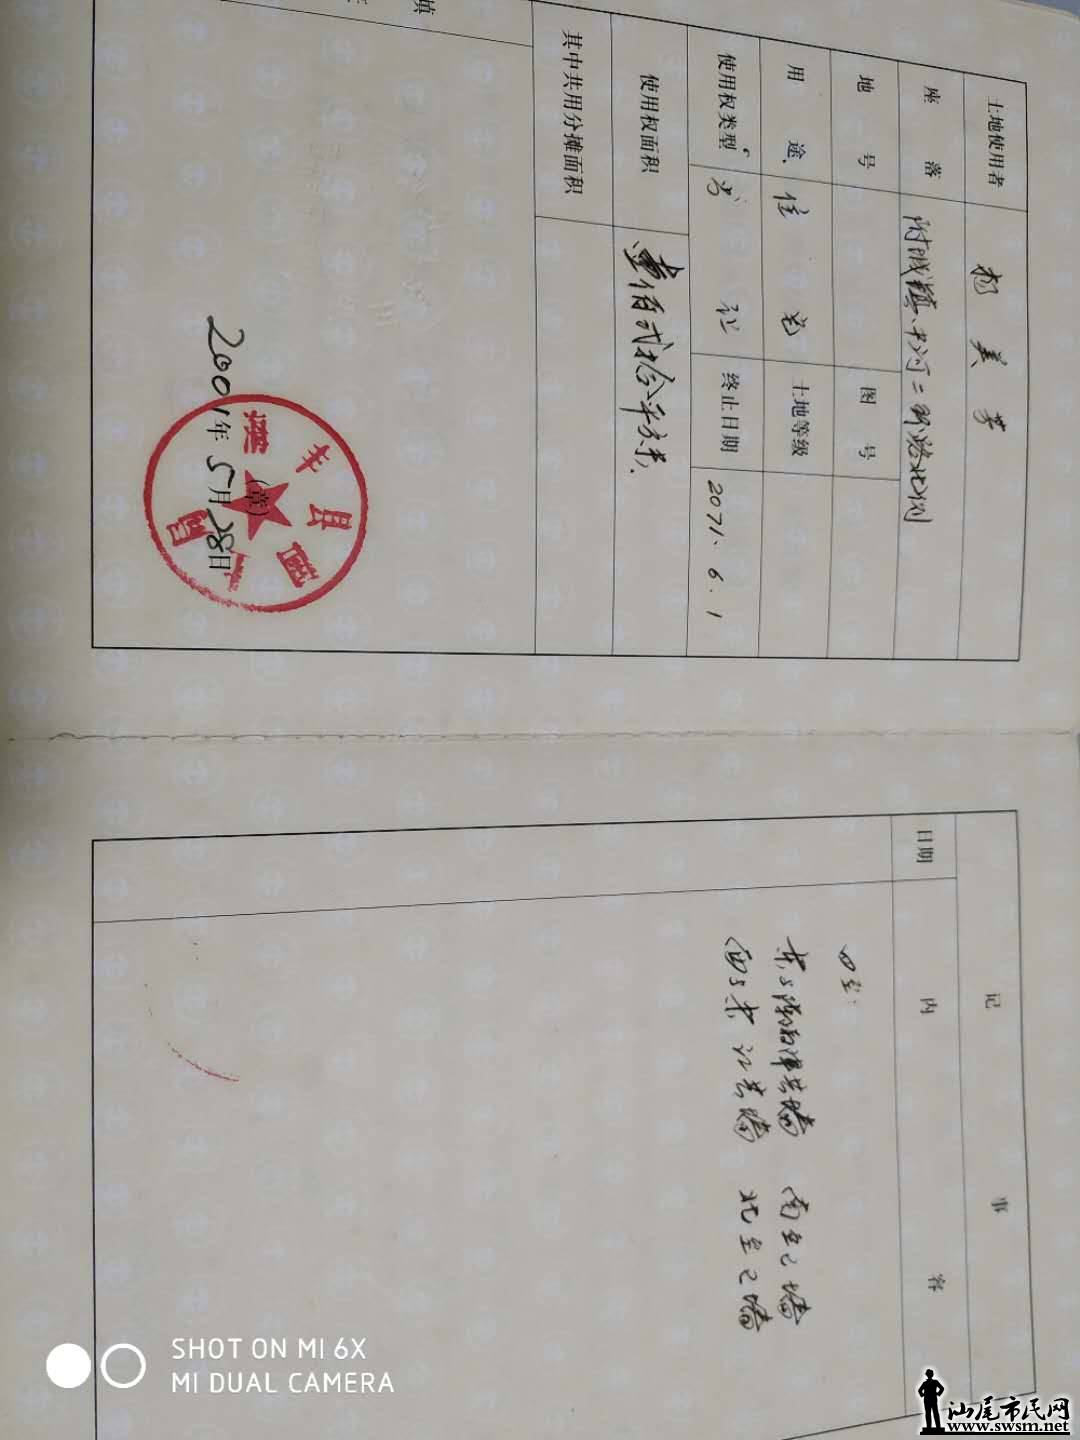 土地使用者 杨美芳
座落 附城镇
地号 图号
用途 住宅 土地等级
使用权类型 出让 终止日期 2071.6.1
使用权面积 壹佰贰拾平方米.
其中共用分摊面积
填
2001年5月28日
(章)
海丰县国
记事
日期 内容
四至:
共墙 南至己墙
西与 共墙 北至己墙
SHOT ON MI 6X
MI DUAL CAMERA
汕尾市民网
www.swsm.net